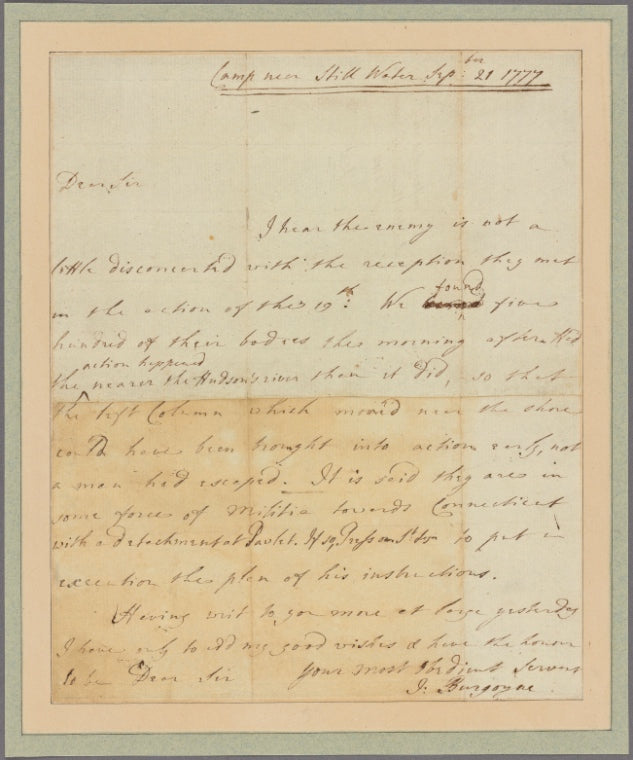 Camp near Still Water Sepber: 21 1777
Dear Sir
I hear the enemy is not a
little disconcerted with the reception they met
in the action of the 19th: We found five
hundred of their bodies the morning after. Had
the action happened nearer the Hudson's river than it did, so that
the left Column which mov'd near the shore
could have been brought into action early, not
a man had escaped. It is said they are in
some force of Militia towards Connecticut
with a detachment at Pawlet. If so, Press on St to put in
execution the plan of his instructions.
Having writ to you more at large yesterday
I have only to add my good wishes & have the honour
to be Dear Sir your most Obedient Servant
J: Burgoyne